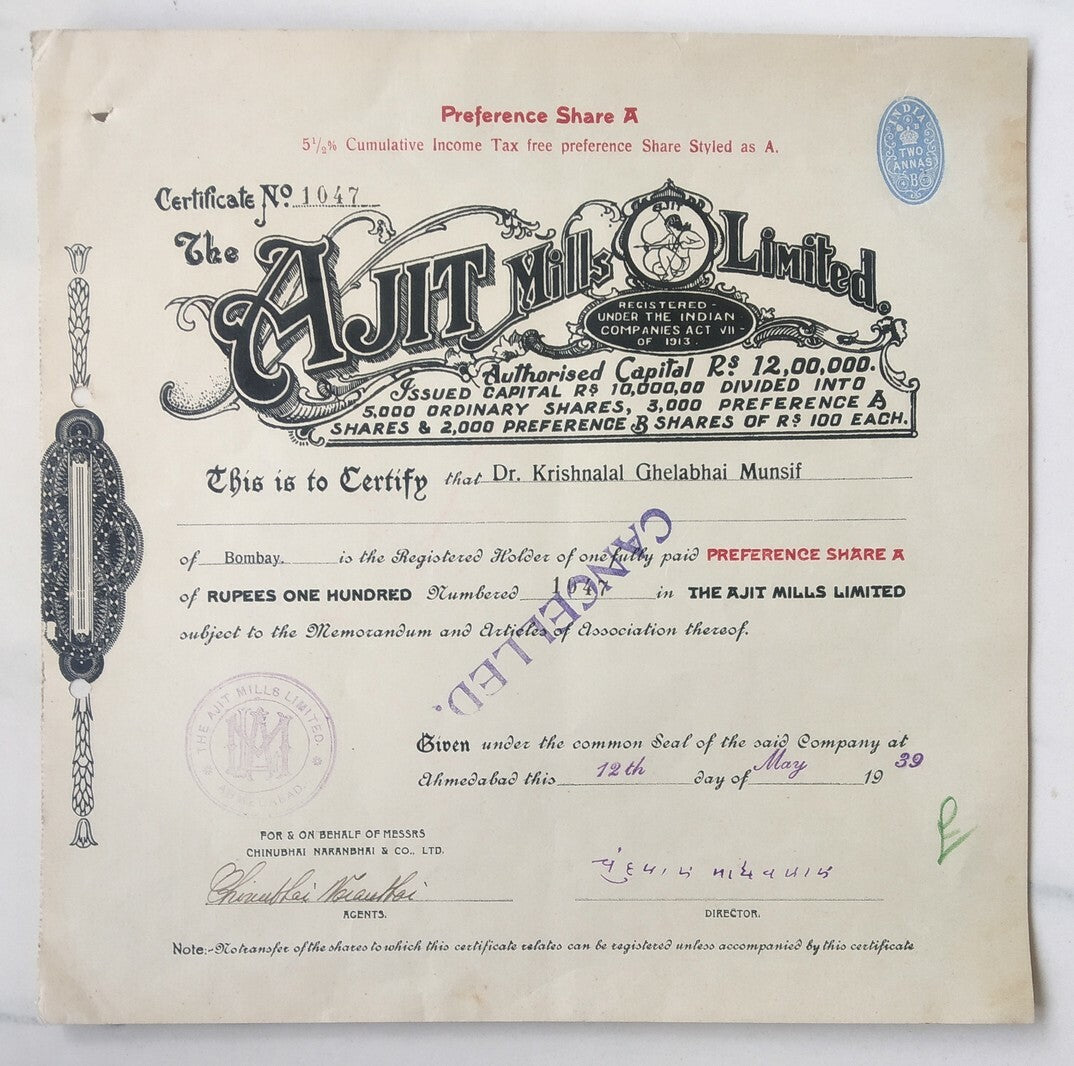 Preference Share A
5½% Cumulative Income Tax free preference Share Styled as A.
INDIA
TWO
ANNAS
B
Certificate Nº 1047
The AJIT Mills Limited.
AJIT
REGISTERED-
UNDER THE INDIAN
COMPANIES ACT VII-
OF 1913.
Authorised Capital Rs 12,00,000.
ISSUED CAPITAL Rs 10,000,00 DIVIDED INTO
5,000 ORDINARY SHARES, 3,000 PREFERENCE A
SHARES & 2,000 PREFERENCE B SHARES OF Rs 100 EACH.
This is to Certify that Dr. Krishnalal Ghelabhai Munsif
of Bombay. is the Registered Holder of one fully paid PREFERENCE SHARE A
of RUPEES ONE HUNDRED Numbered 1047 in THE AJIT MILLS LIMITED
subject to the Memorandum and Articles of Association thereof.
CANCELLED.
THE AJIT MILLS LIMITED.
Given under the common Seal of the said Company at
Ahmedabad this 12th day of May 1939
FOR & ON BEHALF OF MESSRS
CHINUBHAI NARANBHAI & CO., LTD.
Chinubhai Naranbhai
AGENTS.
DIRECTOR.
Note:-No transfer of the shares to which this certificate relates can be registered unless accompanied by this certificate